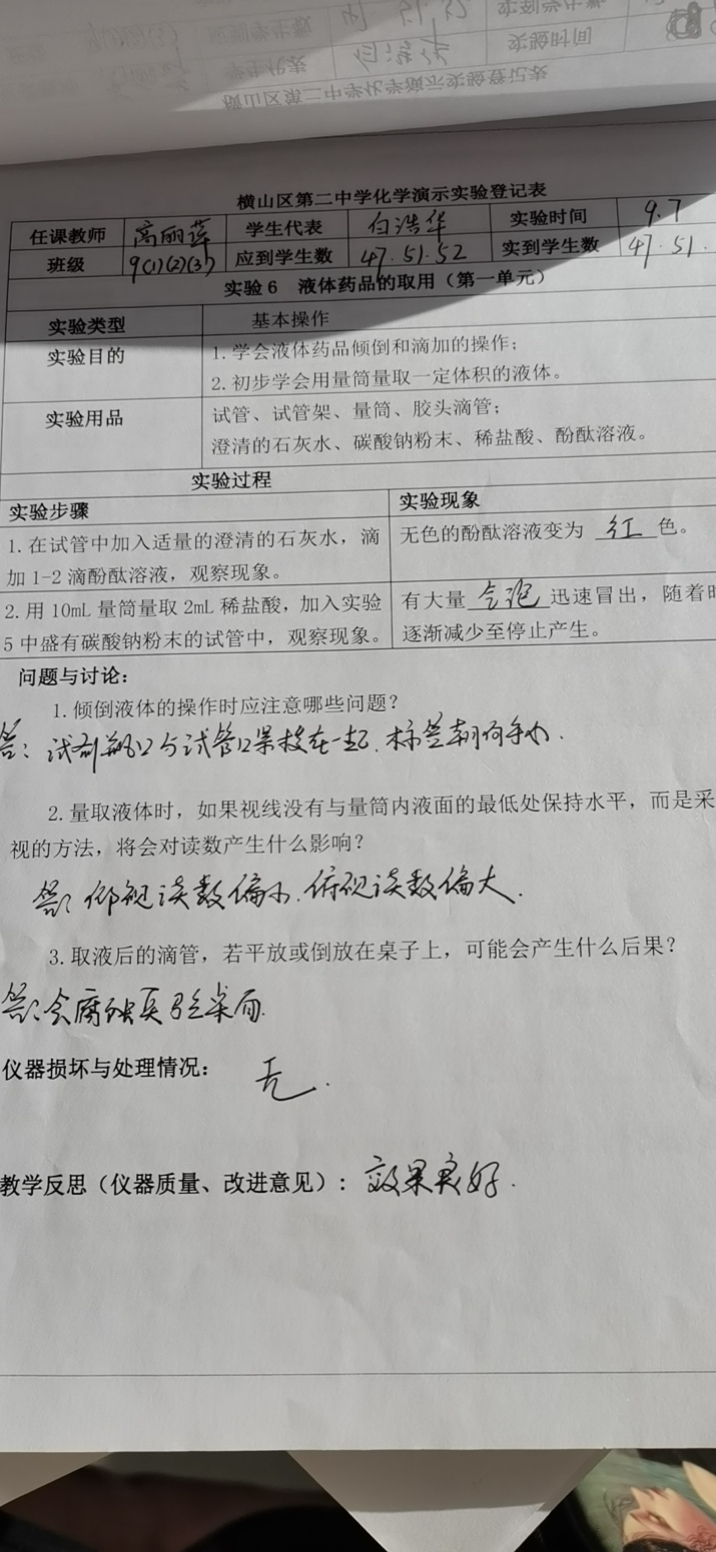 横山区第二中学化学演示实验登记表
任课教师 高丽萍 学生代表 白浩华 实验时间 9.7
班级 9(1)(2)(3) 应到学生数 47.51.52 实到学生数 47.51.
实验6 液体药品的取用（第一单元）
实验类型 基本操作
实验目的 1.学会液体药品倾倒和滴加的操作；
2.初步学会用量筒量取一定体积的液体。
实验用品 试管、试管架、量筒、胶头滴管；
澄清的石灰水、碳酸钠粉末、稀盐酸、酚酞溶液。
实验过程
实验步骤 实验现象
1.在试管中加入适量的澄清的石灰水，滴 无色的酚酞溶液变为 红 色。
加1-2滴酚酞溶液，观察现象。
2.用10mL量筒量取2mL稀盐酸，加入实验 有大量 气泡 迅速冒出，随着
5中盛有碳酸钠粉末的试管中，观察现象。 逐渐减少至停止产生。
问题与讨论：
1.倾倒液体的操作时应注意哪些问题？
答：试剂瓶口与试管口紧挨在一起.标签朝向手心.
2.量取液体时，如果视线没有与量筒内液面的最低处保持水平，而是采
视的方法，将会对读数产生什么影响？
答：仰视读数偏小.俯视读数偏大.
3.取液后的滴管，若平放或倒放在桌子上，可能会产生什么后果？
答：会腐蚀实验桌面.
仪器损坏与处理情况： 无.
教学反思（仪器质量、改进意见）：效果良好.